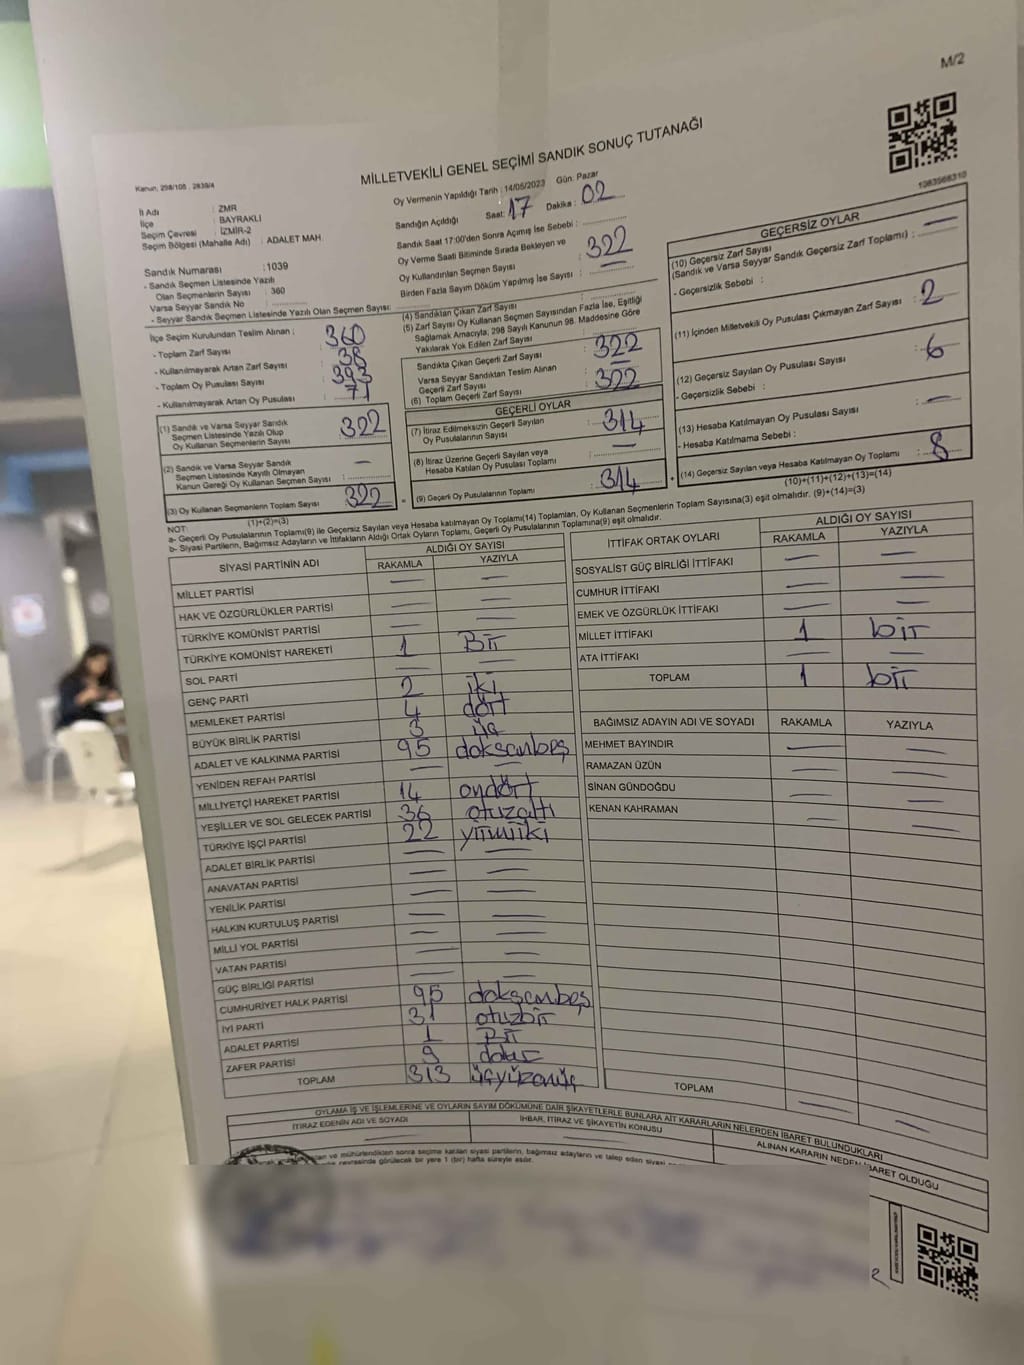 M/2
MİLLETVEKİLİ GENEL SEÇİMİ SANDIK SONUÇ TUTANAĞI
Kanun, 298/105 , 2839/4
1083568310
İl Adı : ZMR
İlçe : BAYRAKLI
Seçim Çevresi : İZMİR-2
Seçim Bölgesi (Mahalle Adı) : ADALET MAH.
Sandık Numarası :1039
- Sandık Seçmen Listesinde Yazılı
Olan Seçmenlerin Sayısı : 360
Varsa Seyyar Sandık No :
- Seyyar Sandık Seçmen Listesinde Yazılı Olan Seçmen Sayısı:
Oy Vermenin Yapıldığı Tarih : 14/05/2023 Gün. Pazar
Sandığın Açıldığı Saat: 17 Dakika : 02
Sandık Saat 17:00'den Sonra Açılmış İse Sebebi :
Oy Verme Saati Bitiminde Sırada Bekleyen ve
Oy Kullandırılan Seçmen Sayısı : 322
Birden Fazla Sayım Döküm Yapılmış İse Sayısı :
İlçe Seçim Kurulundan Teslim Alınan :
- Toplam Zarf Sayısı : 360
- Kullanılmayarak Artan Zarf Sayısı : 38
- Toplam Oy Pusulası Sayısı : 393
- Kullanılmayarak Artan Oy Pusulası : 71
(1) Sandık ve Varsa Seyyar Sandık
Seçmen Listesinde Yazılı Olup
Oy Kullanan Seçmenlerin Sayısı : 322
(2) Sandık ve Varsa Seyyar Sandık
Seçmen Listesinde Kayıtlı Olmayan
Kanun Gereği Oy Kullanan Seçmen Sayısı : —
(3) Oy Kullanan Seçmenlerin Toplam Sayısı : 322
(1)+(2)=(3)
(4) Sandıktan Çıkan Zarf Sayısı
(5) Zarf Sayısı Oy Kullanan Seçmen Sayısından Fazla İse, Eşitliği
Sağlamak Amacıyla; 298 Sayılı Kanunun 98. Maddesine Göre
Yakılarak Yok Edilen Zarf Sayısı :
Sandıkta Çıkan Geçerli Zarf Sayısı : 322
Varsa Seyyar Sandıktan Teslim Alınan
Geçerli Zarf Sayısı
(6) Toplam Geçerli Zarf Sayısı : 322
GEÇERLİ OYLAR
(7) İtiraz Edilmeksizin Geçerli Sayılan
Oy Pusulalarının Sayısı : 314
(8) İtiraz Üzerine Geçerli Sayılan veya
Hesaba Katılan Oy Pusulası Toplamı : —
(9) Geçerli Oy Pusulalarının Toplamı : 314
GEÇERSİZ OYLAR
(10) Geçersiz Zarf Sayısı
(Sandık ve Varsa Seyyar Sandık Geçersiz Zarf Toplamı) : —
- Geçersizlik Sebebi :
(11) İçinden Milletvekili Oy Pusulası Çıkmayan Zarf Sayısı : 2
(12) Geçersiz Sayılan Oy Pusulası Sayısı : 6
- Geçersizlik Sebebi :
(13) Hesaba Katılmayan Oy Pusulası Sayısı : —
- Hesaba Katılmama Sebebi :
(14) Geçersiz Sayılan veya Hesaba Katılmayan Oy Toplamı : 8
(10)+(11)+(12)+(13)=(14)
NOT:
a- Geçerli Oy Pusulalarının Toplamı(9) ile Geçersiz Sayılan veya Hesaba katılmayan Oy Toplamı(14) Toplamları, Oy Kullanan Seçmenlerin Toplam Sayısına(3) eşit olmalıdır. (9)+(14)=(3)
b- Siyasi Partilerin, Bağımsız Adayların ve İttifakların Aldığı Ortak Oyların Toplamı, Geçerli Oy Pusulalarının Toplamına(9) eşit olmalıdır.
SİYASİ PARTİNİN ADI ALDIĞI OY SAYISI
RAKAMLA YAZIYLA
MİLLET PARTİSİ — —
HAK VE ÖZGÜRLÜKLER PARTİSİ — —
TÜRKİYE KOMÜNİST PARTİSİ — —
TÜRKİYE KOMÜNİST HAREKETİ 1 Bir
SOL PARTİ — —
GENÇ PARTİ 2 iki
MEMLEKET PARTİSİ 4 dört
BÜYÜK BİRLİK PARTİSİ 3 üç
ADALET VE KALKINMA PARTİSİ 95 doksanbeş
YENİDEN REFAH PARTİSİ — —
MİLLİYETÇİ HAREKET PARTİSİ 14 ondört
YEŞİLLER VE SOL GELECEK PARTİSİ 36 otuzaltı
TÜRKİYE İŞÇİ PARTİSİ 22 yirmiiki
ADALET BİRLİK PARTİSİ — —
ANAVATAN PARTİSİ — —
YENİLİK PARTİSİ — —
HALKIN KURTULUŞ PARTİSİ — —
MİLLİ YOL PARTİSİ — —
VATAN PARTİSİ — —
GÜÇ BİRLİĞİ PARTİSİ — —
CUMHURİYET HALK PARTİSİ 95 doksanbeş
İYİ PARTİ 31 otuzbir
ADALET PARTİSİ 1 Bir
ZAFER PARTİSİ 9 dokuz
TOPLAM 313 üçyüzonüç
İTTİFAK ORTAK OYLARI ALDIĞI OY SAYISI
RAKAMLA YAZIYLA
SOSYALİST GÜÇ BİRLİĞİ İTTİFAKI — —
CUMHUR İTTİFAKI — —
EMEK VE ÖZGÜRLÜK İTTİFAKI — —
MİLLET İTTİFAKI 1 bir
ATA İTTİFAKI — —
TOPLAM 1 bir
BAĞIMSIZ ADAYIN ADI VE SOYADI RAKAMLA YAZIYLA
MEHMET BAYINDIR — —
RAMAZAN ÜZÜN — —
SİNAN GÜNDOĞDU — —
KENAN KAHRAMAN — —
TOPLAM — —
OYLAMA İŞ VE İŞLEMLERİNE VE OYLARIN SAYIM DÖKÜMÜNE DAİR ŞİKAYETLERLE BUNLARA AİT KARARLARIN NELERDEN İBARET BULUNDUKLARI
İTİRAZ EDENİN ADI VE SOYADI İHBAR, İTİRAZ VE ŞİKAYETİN KONUSU ALINAN KARARIN NEDEN İBARET OLDUĞU
ve mühürlendikten sonra seçime katılan siyasi partilerin, bağımsız adayların ve talep eden siyasi
çevresinde görülecek bir yere 1 (bir) hafta süreyle asılır.